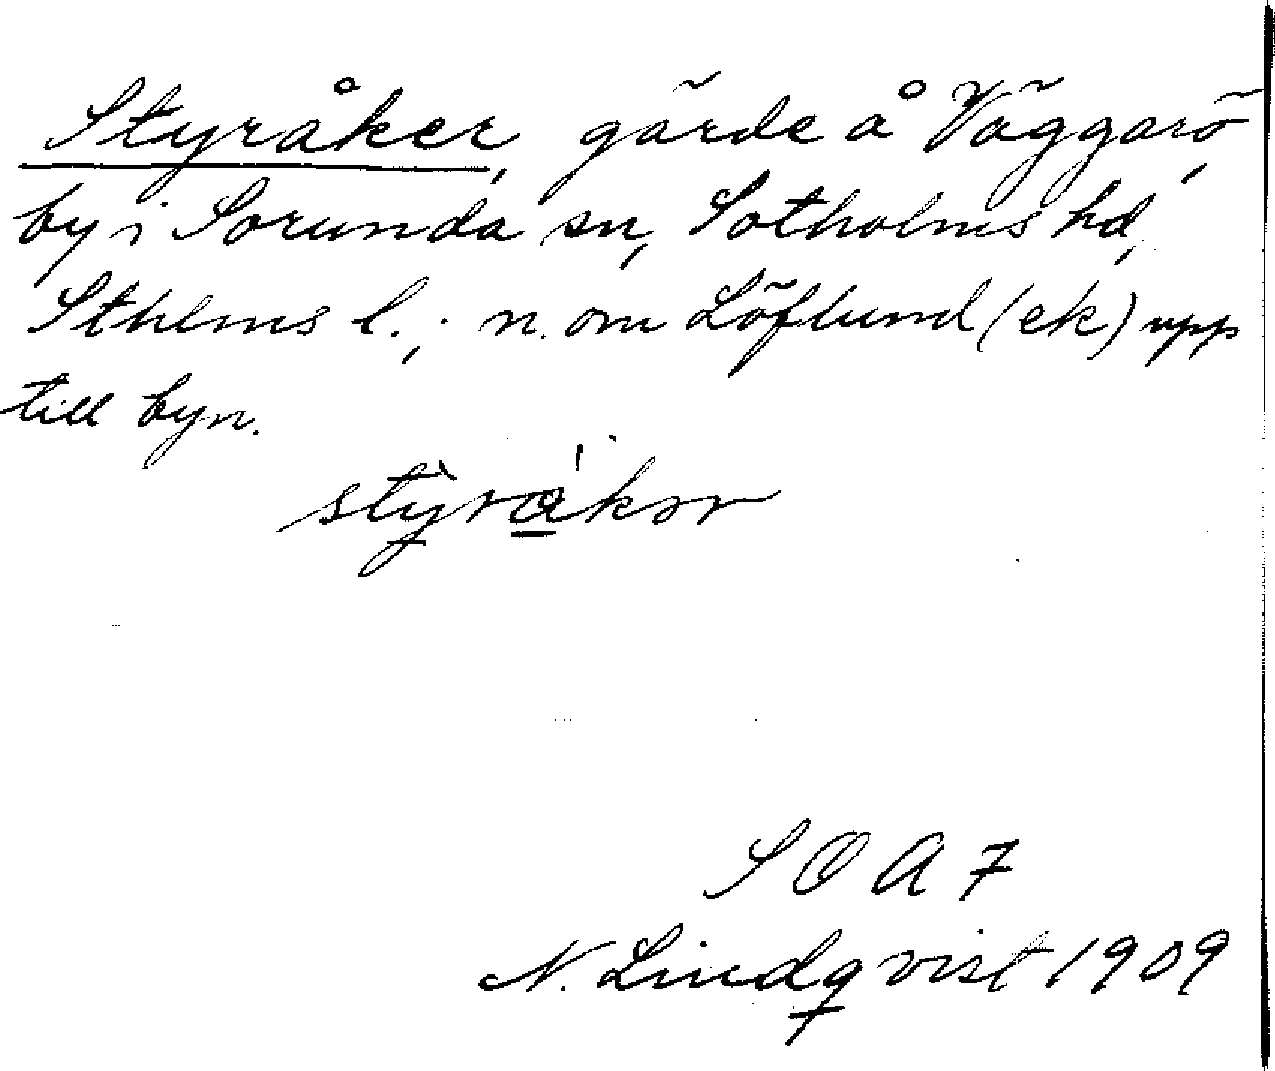 Styråker, gärde å Väggarö,
by i Sorunda sn, Sotholms hd,
Sthlms l.; n. om Löflund (ek) upp
till byn.
stỳrákər
S O A 7
N. Lindqvist 1909